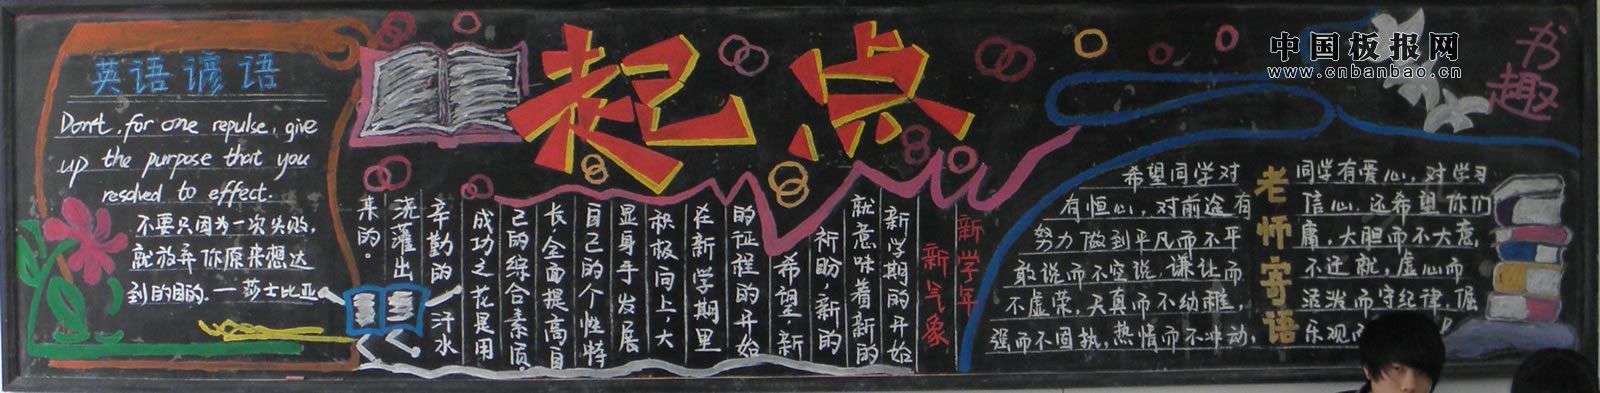 英语谚语
Don't, for one repulse, give
up the purpose that you
resolved to effect.
不要只因为一次失败,
就放弃你原来想达
到的目的.一莎士比亚
起点
新学年
新气象
新学期的开始
就意味着新的
祈盼,新的
希望,新
的征程的开始
在新学期里
积极向上,大
显身手发展
自己的个性特
长,全面提高自
己的综合素质.
成功之花是用
辛勤的汗水
浇灌出
来的。
中国板报网
www.cnbanbao.cn
书趣
老师寄语
希望同学对同学有爱心,对学习
有恒心,对前途有信心.还希望你们
努力做到平凡而不平庸,大胆而不大意,
敢说而不空说.谦让而不迁就,虚心而
不虚荣,天真而不幼稚,活泼而守纪律,倔
强而不固执,热情而不冲动,乐观